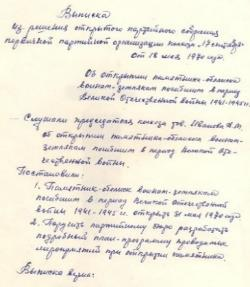 Выписка
из решения открытого партийного собрания
первичной партийной организации колхоза "17 сентября"
от 18 мая 1970 года
Об открытии памятника-обелиска
воинам-землякам погибшим в период
Великой Отечественной войны 1941-1945 гг.
Слушали председателя колхоза тов. Иванова
об открытии памятника-обелиска воинам-
землякам погибшим в период Великой Оте-
чественной войны.
Постановили:
1. Памятник-обелиск воинам-землякам
погибшим в период Великой Отечественной
войны 1941-1945 гг. открыть 31 мая 1970 года
2. Поручить партийному бюро разработать
подробный план-программу проводимых
мероприятий при открытии памятника.
Выписка верна: